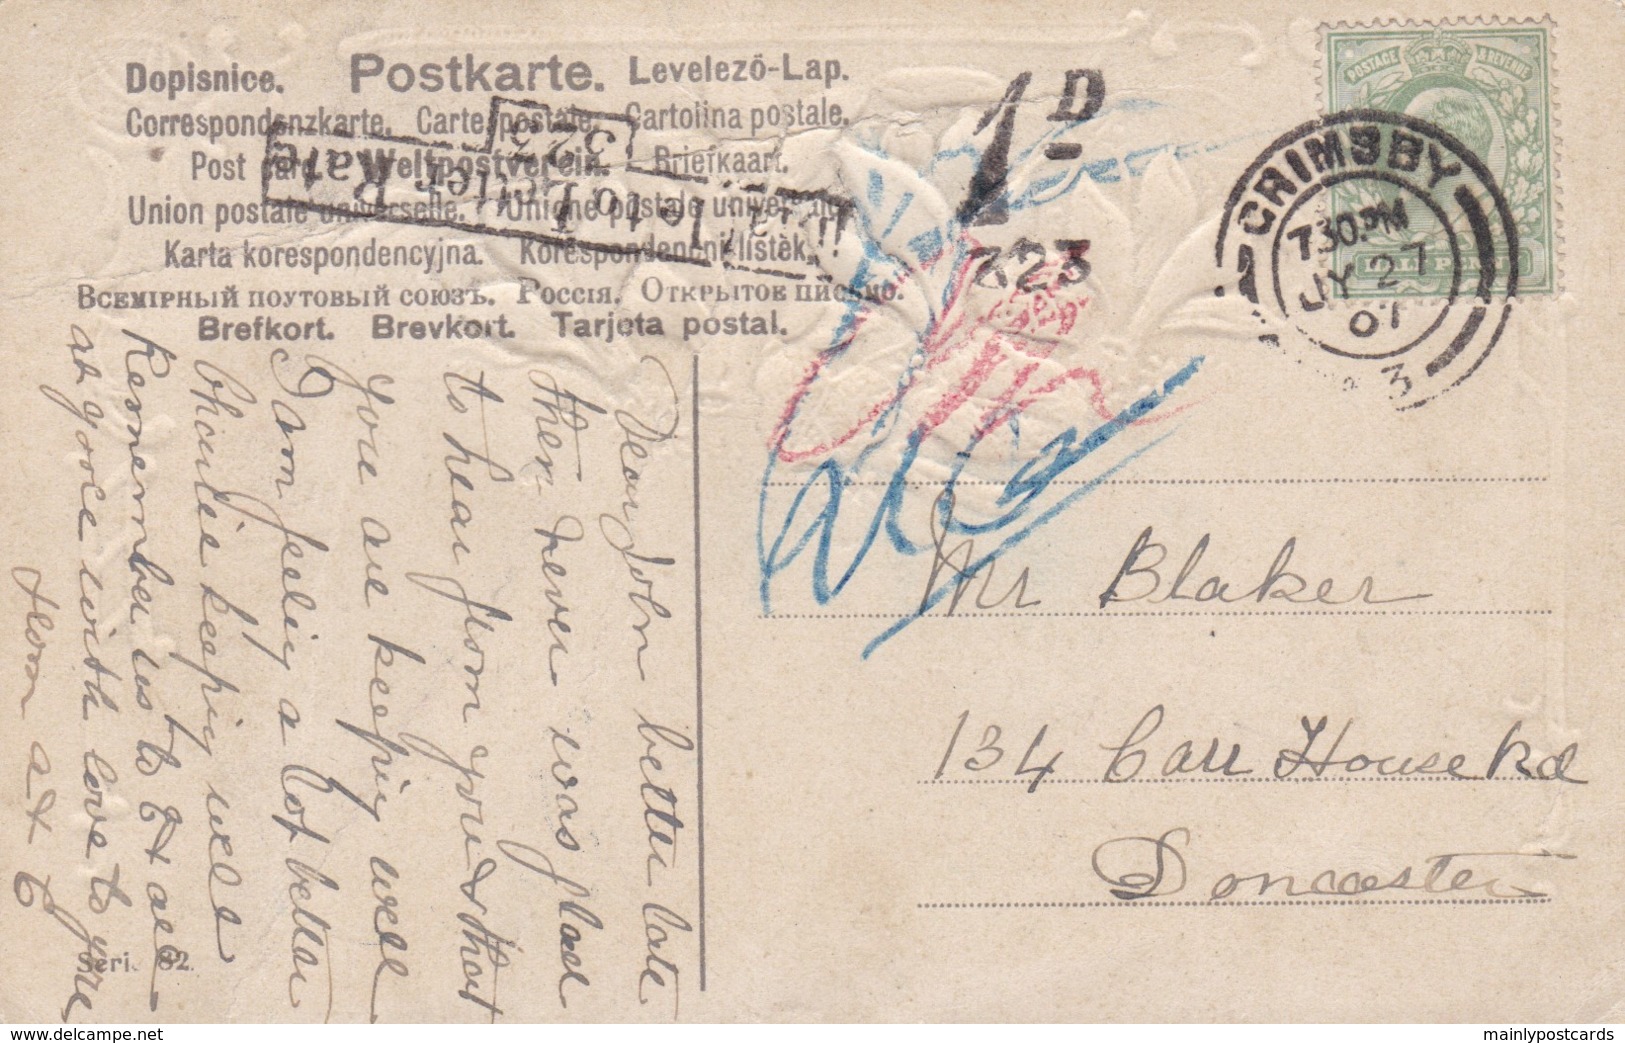 Dopisnice. Postkarte. Levelező-Lap.
Correspondenzkarte. Carte postale. Cartolina postale.
Post card. Weltpostverein. Briefkaart.
Union postale universelle. Unione postale universale
Karta korespondencyjna. Korespondenční lístek.
Всемірный поутовый союзъ. Россія. Открытое письмо.
Brefkort. Brevkort. Tarjeta postal.
1D
323
Liable to Letter Rate
323
POSTAGE & REVENUE
HALF PENNY
GRIMSBY
7.30.PM
JY 27
07
3
Mr Blaker
134 Carr House Rd
Doncaster
Dear John better late
then never was glad
to hear from you & that
you are keeping well
I am feeling a lot better
Charlie keeping well
Remember us to E & all
at yore with love to yore
from A & E
Serie 82.
delcampe.net
mainlypostcards